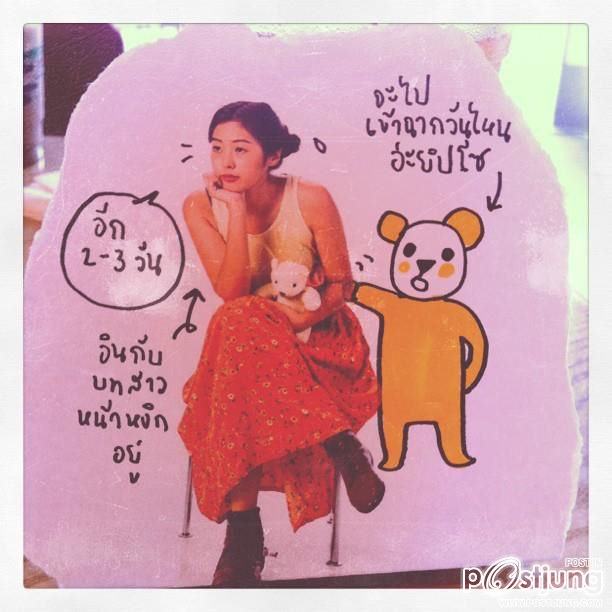 จะไป
เข้าฉากวันไหน
อ่ะยิปโซ
อีก
2-3 วัน
อินกับ
บทสาว
หน้าหงิก
อยู่
postjung
WWW.POSTJUNG.COM